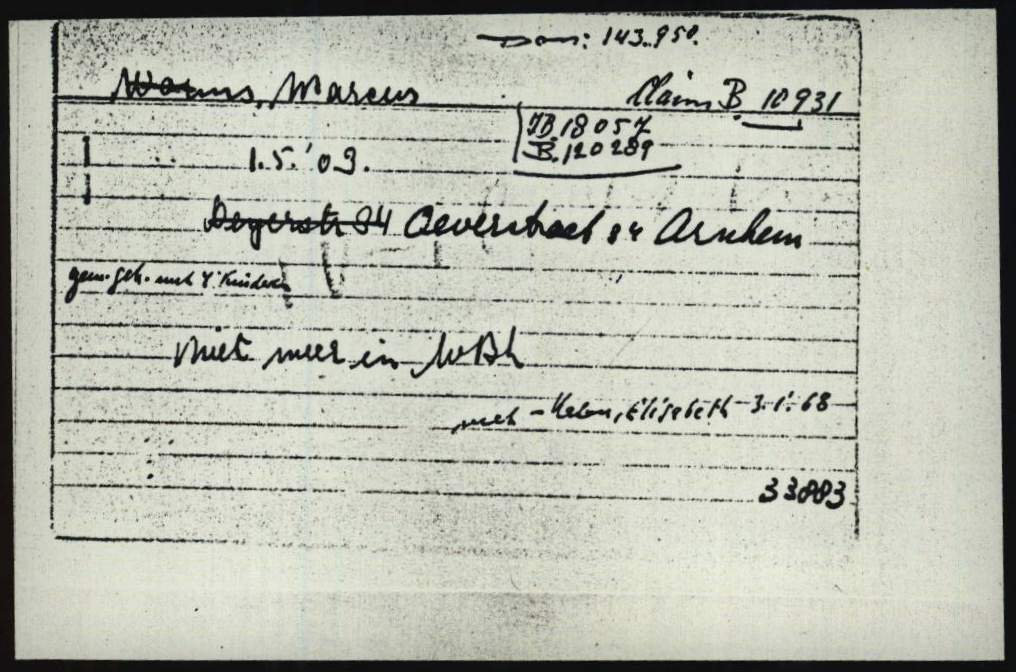 Dos: 143.950.
Worms, Marcus Claims B 10931
JB 18057
B. 120289
1.5.'09.
Deyerstr 84 Oeverstraat 84 Arnhem
gem. geh. met 4 Kinderen
niet meer in
Elisabeth 3.1.68
33883